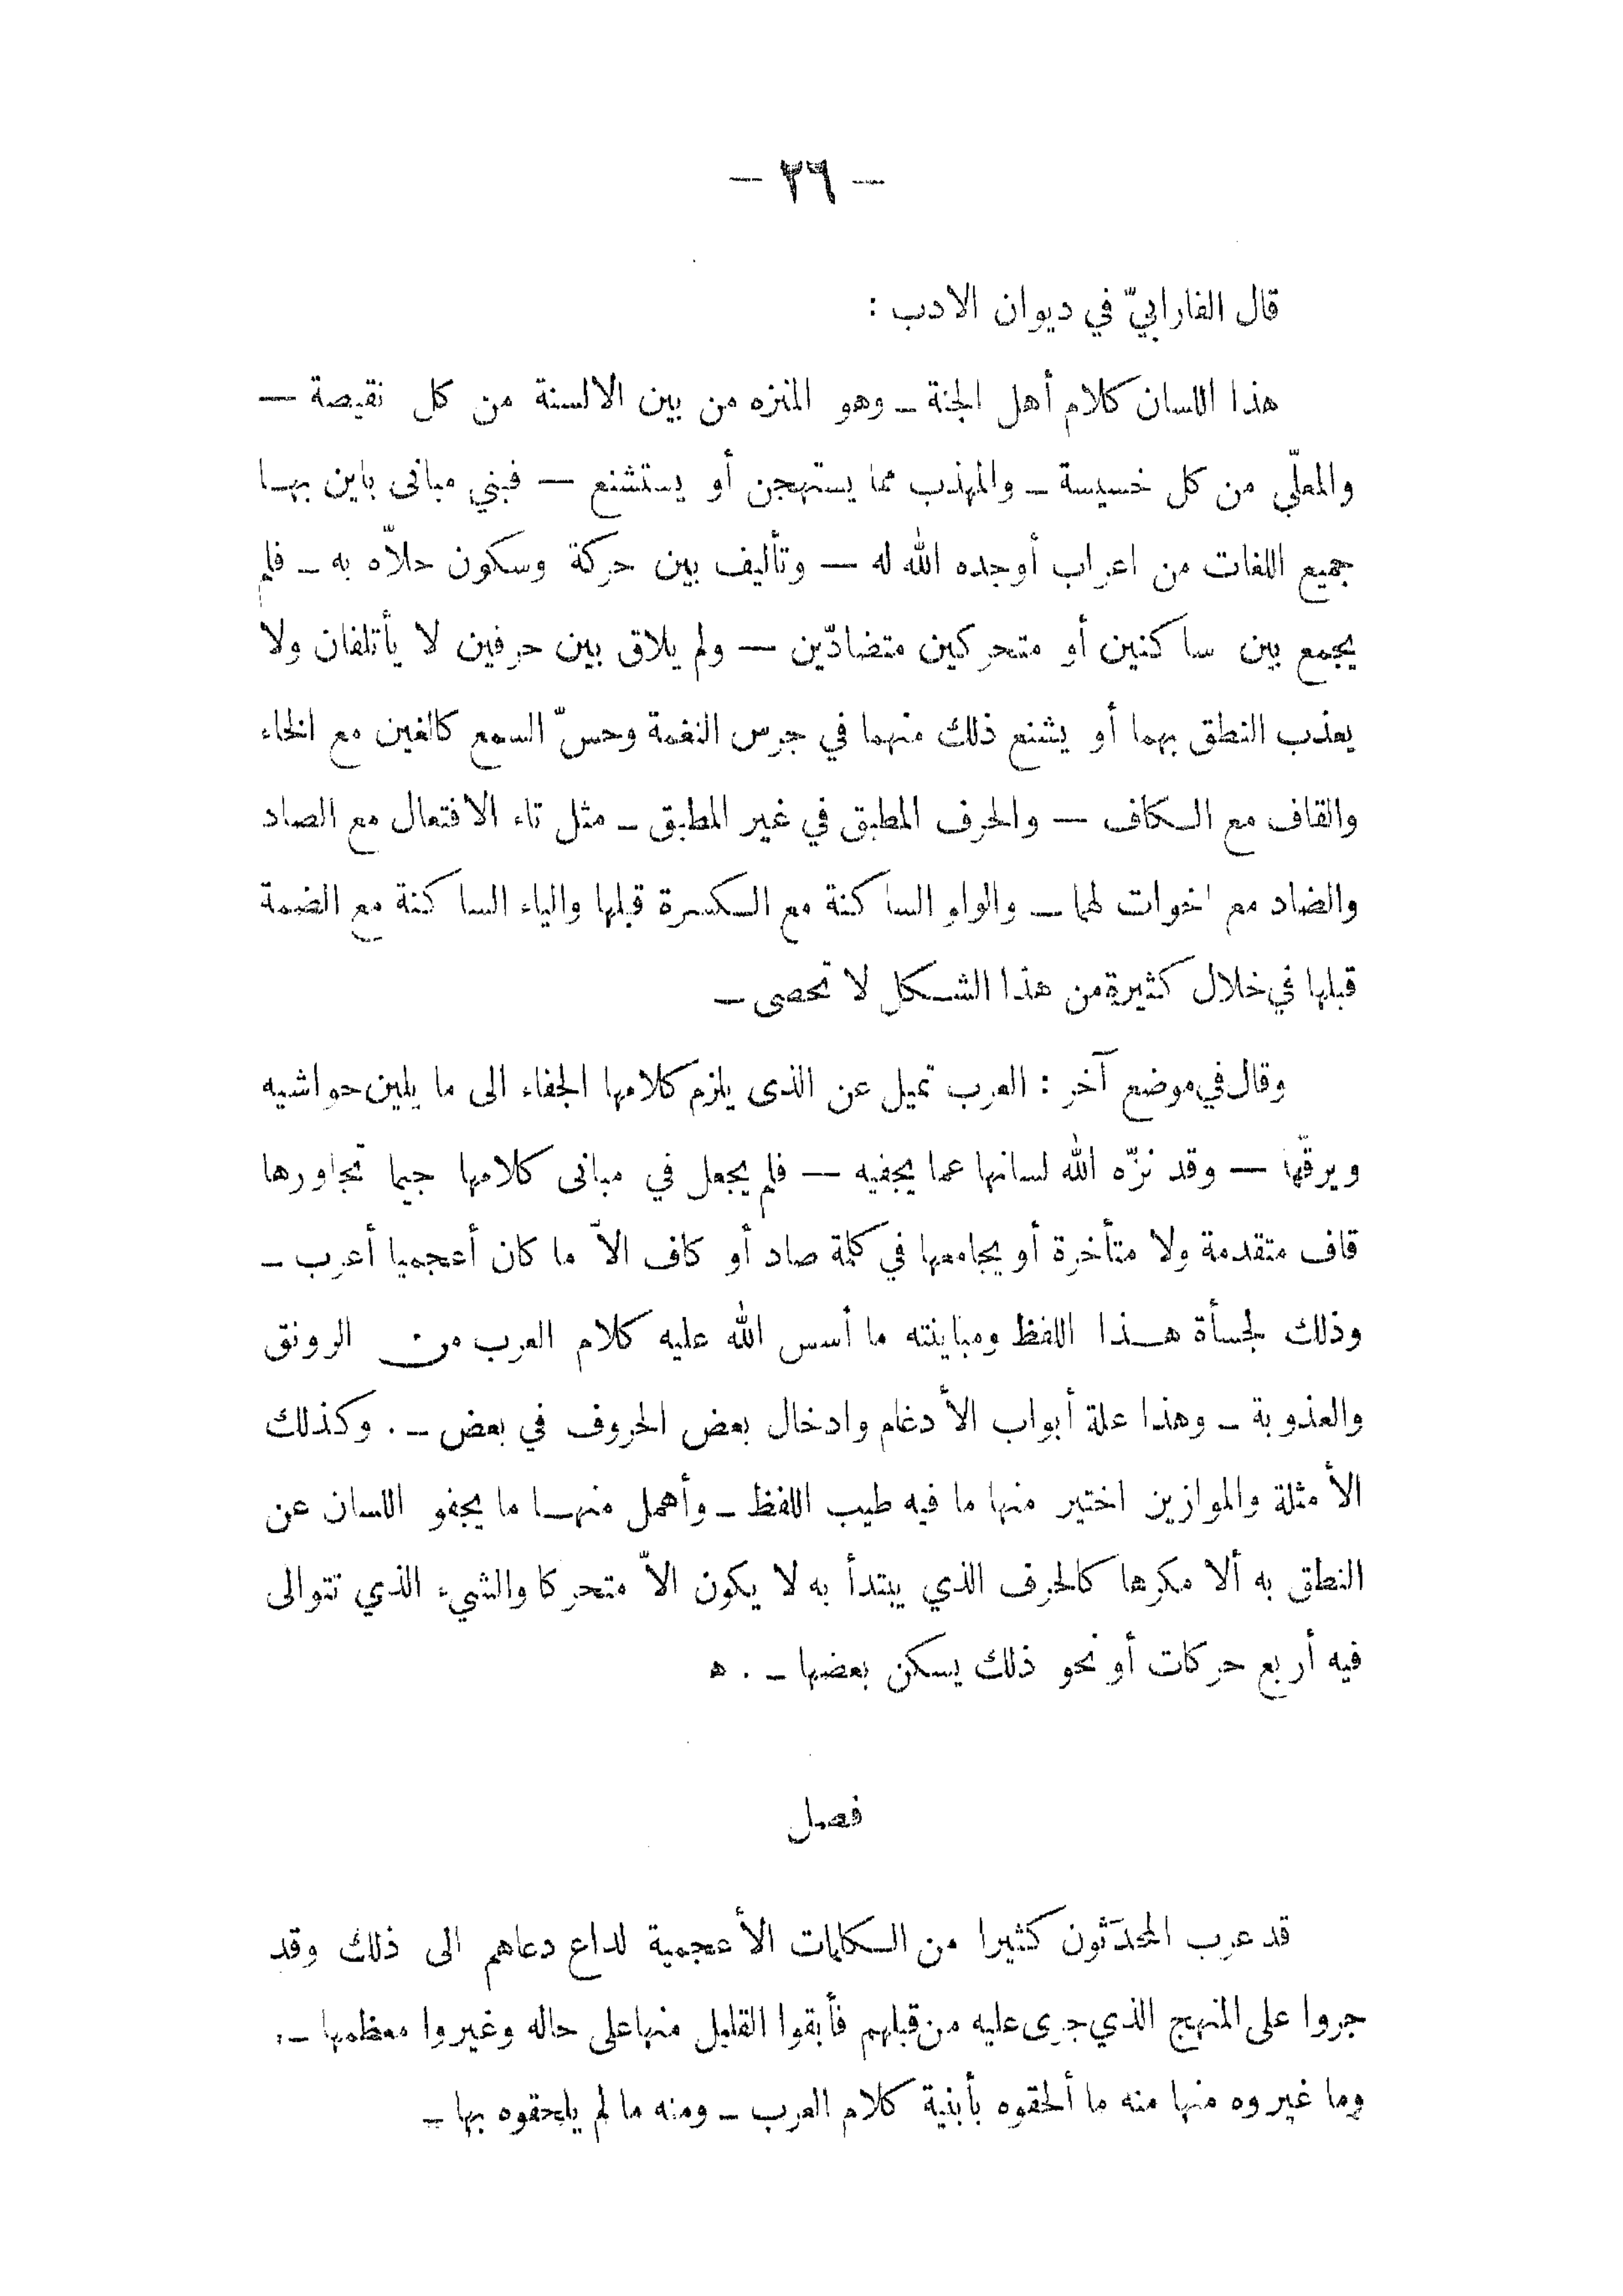 — ٢٦ —
قال الفارابيّ في ديوان الادب :
هذا اللسان كلام أهل الجنة ـ وهو المنزه من بين الالسنة من كل نقيصة —
والمعلّي من كل خسيسة ـ والمهذب مما يستهجن أو يستشنع — فبني مبانى باين بها
جميع اللغات من اعراب أوجده الله له — وتأليف بين حركة وسكون حلاّه به ـ فلم
يجمع بين ساكنين أو متحركين متضادّين — ولم يلاق بين حرفين لا يأتلفان ولا
يعذب النطق بهما أو يشنع ذلك منهما في جرس النغمة وحسّ السمع كالغين مع الخاء
والقاف مع الكاف — والحرف المطبق في غير المطبق ـ مثل تاء الافتعال مع الصاد
والضاد مع اخوات لهما ـ والواو الساكنة مع الكسرة قبلها والياء الساكنة مع الضمة
قبلها في خلال كثيرة من هذا الشكل لا تحصى ـ
وقال في موضع آخر : العرب تميل عن الذى يلزم كلامها الجفاء الى ما يلين حواشيه
ويرقّها — وقد نزّه الله لسانها عما يجفيه — فلم يجعل في مبانى كلامها جيما تجاورها
قاف متقدمة ولا متأخرة أو يجامعها في كلمة صاد أو كاف الاّ ما كان أعجميا أعرب ـ
وذلك لجسأة هذا اللفظ ومباينته ما أسس الله عليه كلام العرب من الرونق
والعذوبة ـ وهذا علة أبواب الأدغام وادخال بعض الحروف في بعض ـ . وكذلك
الأمثلة والموازين اختير منها ما فيه طيب اللفظ ـ وأهمل منها ما يجفو اللسان عن
النطق به ألا مكرها كالحرف الذي يبتدأ به لا يكون الاّ متحركا والشيء الذي تتوالى
فيه أربع حركات أو نحو ذلك يسكن بعضها ـ . ه
فصل
قد عرب المحدَثون كثيرا من الكلمات الأعجمية لداع دعاهم الى ذلك وقد
جروا على المنهج الذي جرى عليه من قبلهم فأبقوا القليل منها على حاله وغيروا معظمها ـ .
وما غيروه منها منه ما ألحقوه بأبنية كلام العرب ـ ومنه ما لم يلحقوه بها ـ